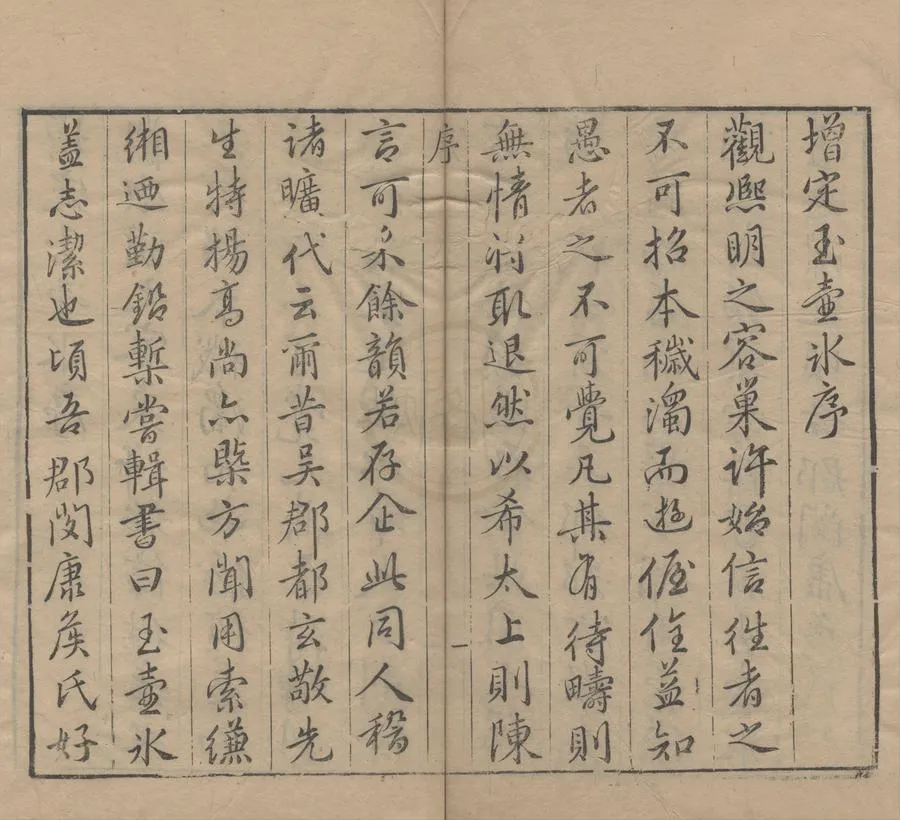 增定玉壷氷序
觀熈明之容巢許始信徃者之
不可招本穢濁而遊偓佺益知
愚者之不可覺凡其有待疇則
無情將取退然以希太上則陳
序
一
言可永餘韻若存企此同人稽
諸曠代云爾昔吴郡都玄敬先
生特揚髙尚亦槩方聞用索縑
緗迺勤鉛槧嘗輯書曰玉壷氷
盖志潔也頃吾郡閔康矦氏好